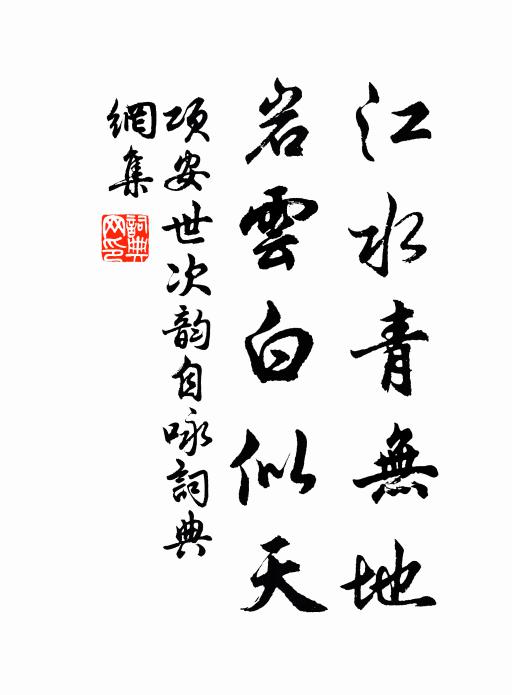 江水青無地
岩雲白似天
項安世次韵自咏詞典
網集
詞典
网印